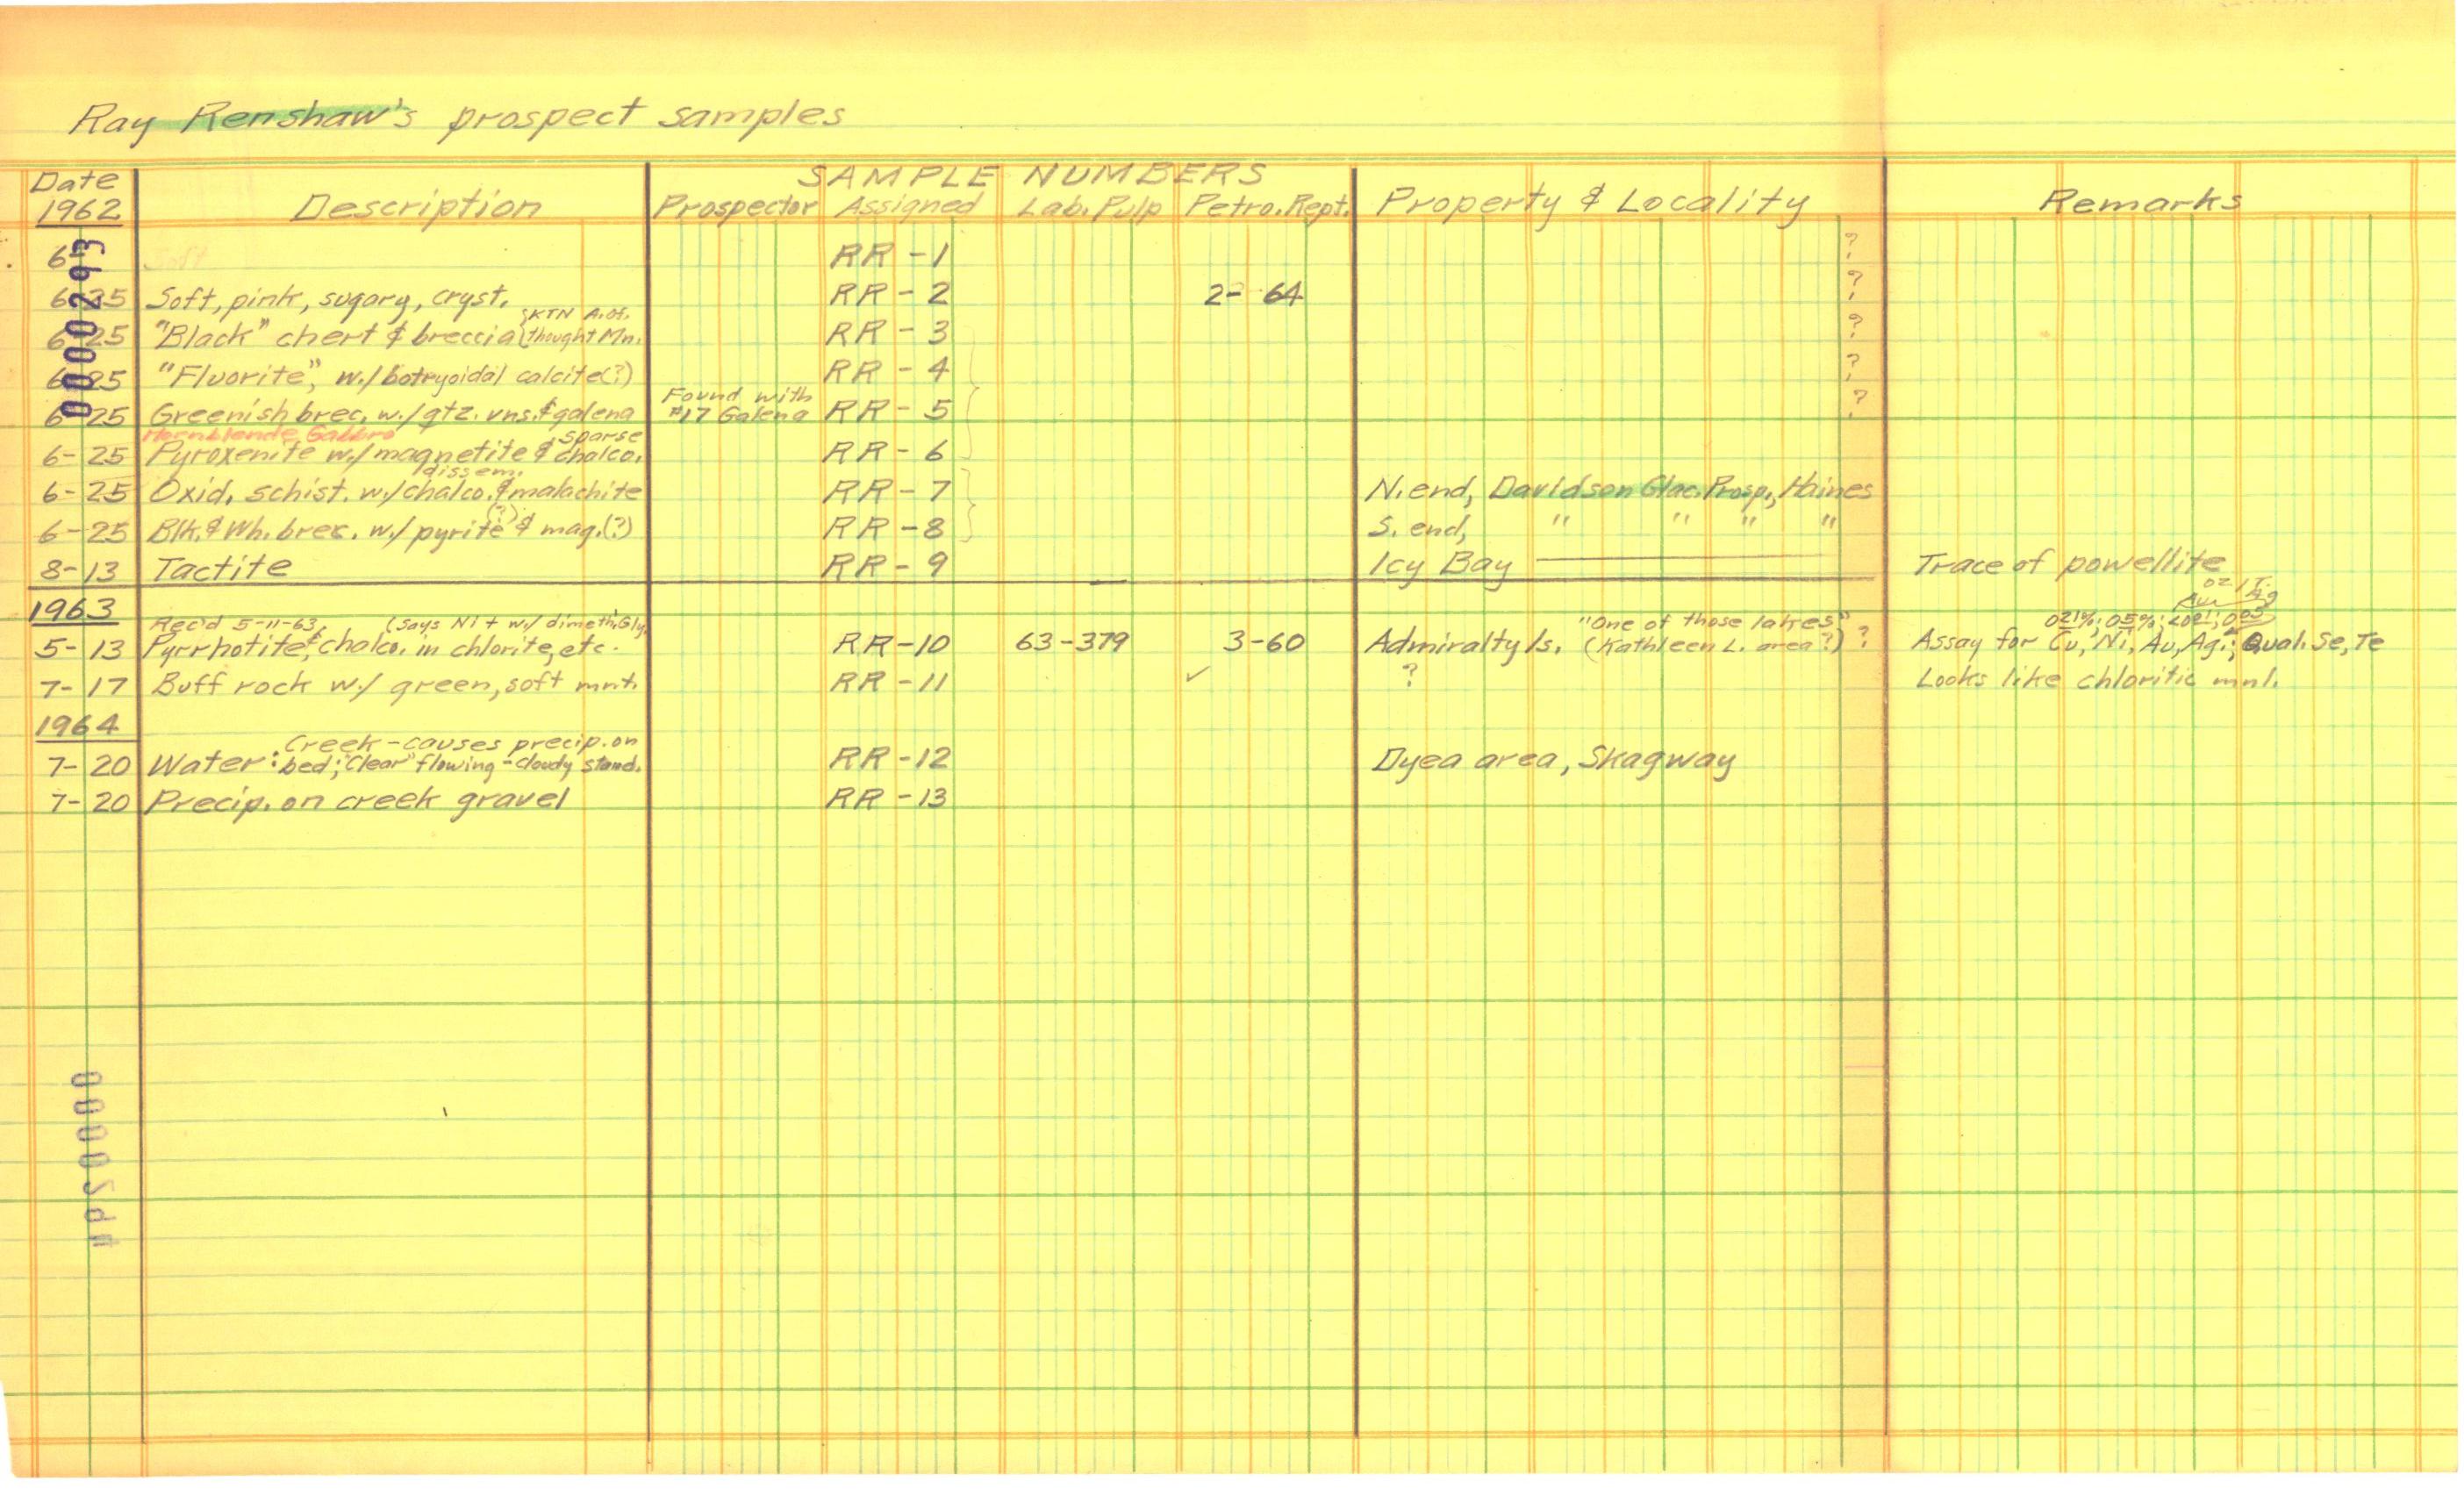 Ray Renshaw's prospect samples
Date 1962 Description SAMPLE NUMBERS Property & Locality Remarks
Prospector Assigned Lab. Pulp Petro. Rept.
6- Soft RR-1 ?
6-25 Soft, pink, sugary, cryst. RR-2 2-64 ?
6-25 "Black" chert & breccia {KTN A.Of. thought Mn. RR-3 ?
6-25 "Fluorite", w./botryoidal calcite(?) RR-4 ?
6-25 Greenish brec. w./qtz. vns. & galena Found with #17 Galena RR-5 ?
Hornblende Gabbro
6-25 Pyroxenite w./magnetite & sparse chalco. RR-6
6-25 Oxid. schist. w./dissem. chalco. & malachite RR-7 N. end, Davidson Glac. Prosp., Haines
6-25 Blk. & Wh. brec. w./ pyrite (?) & mag.(?) RR-8 S. end, " " " "
8-13 Tactite RR-9 Icy Bay Trace of powellite
1963
Rec'd 5-11-63, (Says Ni + w./ dimeth. Gly. "One of those lakes" oz/T.
5-13 Pyrrhotite & chalco. in chlorite, etc. RR-10 63-379 3-60 Admiralty Is. (Kathleen L. area?) ? Assay for Cu, Ni, Au, Ag; Qual. Se, Te
7-17 Buff rock w./ green, soft mnl. RR-11 ✓ ? Looks like chloritic mnl.
1964
7-20 Water: Creek-causes precip. on bed; "Clear" flowing-cloudy stand. RR-12 Dyea area, Skagway
7-20 Precip. on creek gravel RR-13
0000293